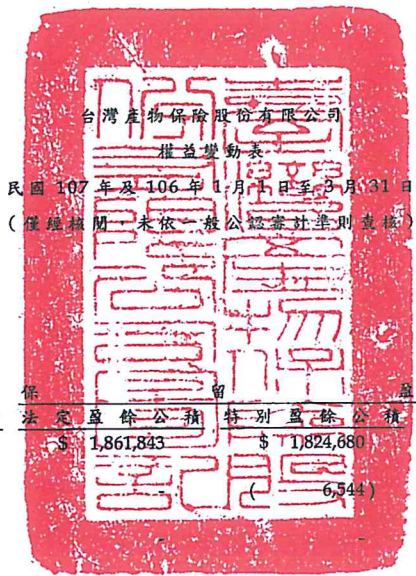 台灣產物保險股份有限公司
權益變動表
民國 107 年及 106 年 1 月 1 日至 3 月 31 日
(僅經核閱,未依一般公認審計準則查核)
保 留 盈
法定盈餘公積 特別盈餘公積
$ 1,861,843 $ 1,824,680
- ( 6,544)
- -